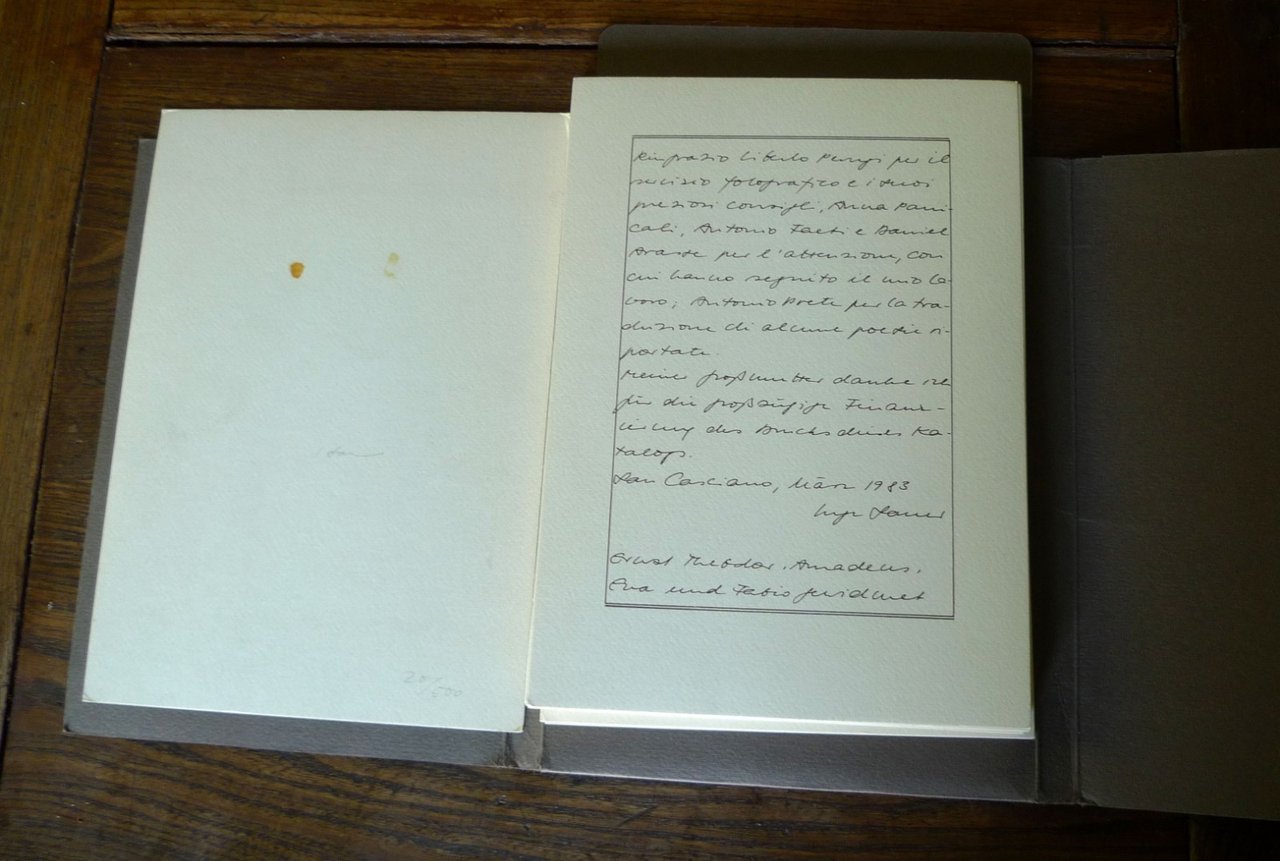 Ringrazio Liberto Perugi per il
servizio fotografico e i suoi
preziosi consigli, Anna Pani-
cali, Antonio Faeti e Daniel
per l'attenzione, con
cui hanno seguito il mio la-
voro; Antonio Prete per la tra-
duzione di alcune poesie ri-
portate.
Meiner Großmutter danke ich
für die großzügige Finanz-
ierung des Drucks dieses Ka-
talogs.
San Casciano, März 1983
Ernst Theodor, Amadeus,
Eva und Fabio gewidmet